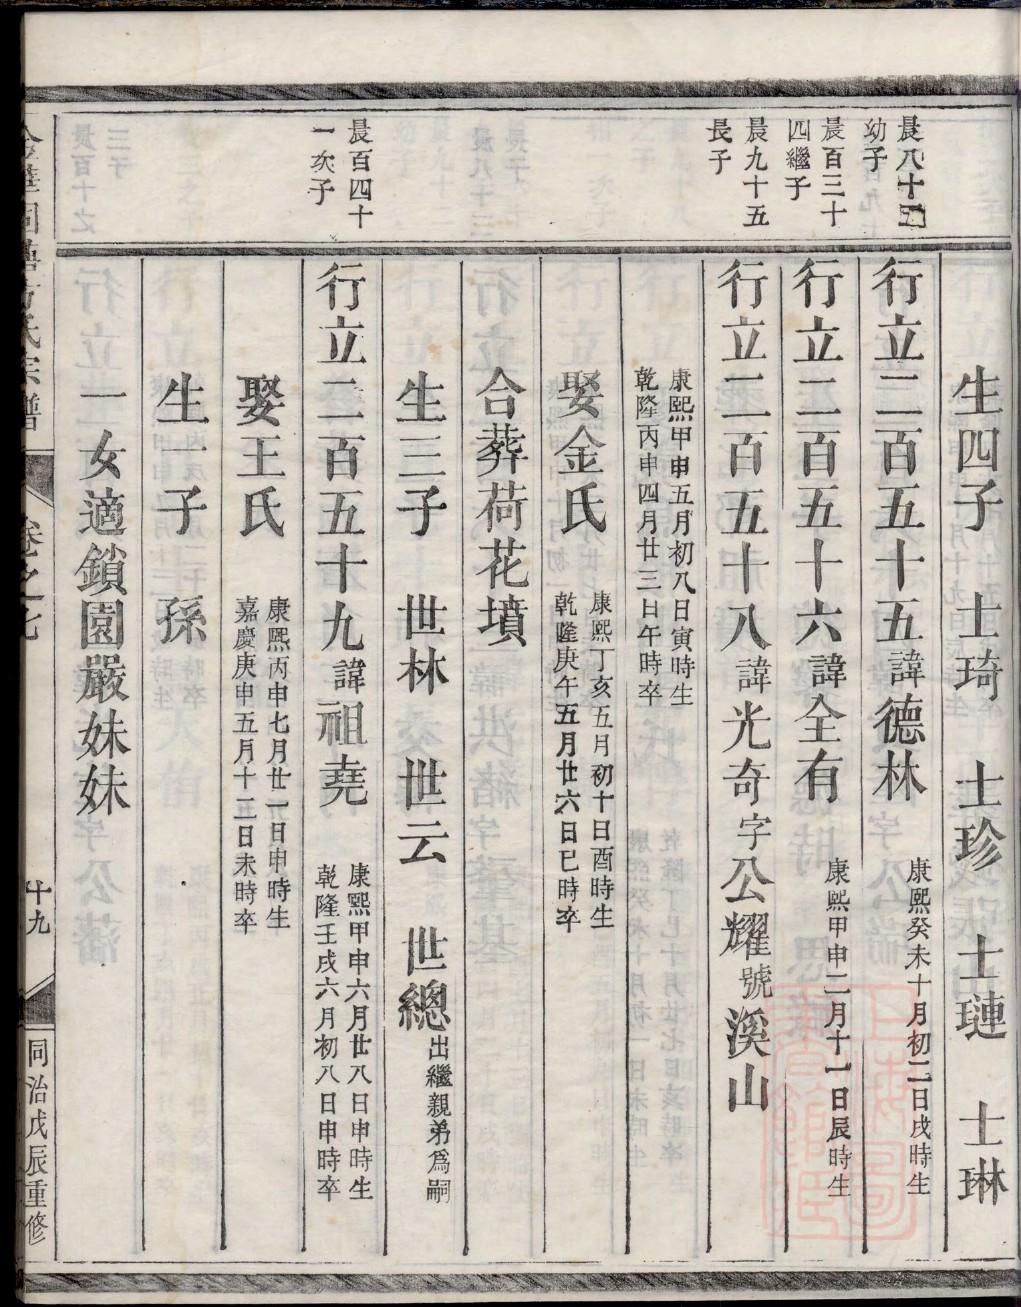 生四子 士琦 士珍 士璉 士琳
晨八十五
幼子
行立二百五十五諱德林
康熙癸未十月初二日戌時生
晨百三十
四繼子
行立二百五十六諱全有
康熙甲申二月十一日辰時生
晨九十五
長子
行立二百五十八諱光奇字公耀號溪山
康熙甲申五月初八日寅時生
乾隆丙申四月廿三日午時卒
娶金氏
康熙丁亥五月初十日酉時生
乾隆庚午五月廿六日巳時卒
合葬荷花墳
生三子 世林 世云 世總
出繼親弟爲嗣
晨百四十
一次子
行立二百五十九諱祖堯
康熙甲申六月廿八日申時生
乾隆壬戌六月初八日申時卒
娶王氏
康熙丙申七月廿一日申時生
嘉慶庚申五月十五日未時卒
生一子 孫
一女適鎖園嚴妹妹
氏宗譜
卷之七
十九
同治戊辰重修